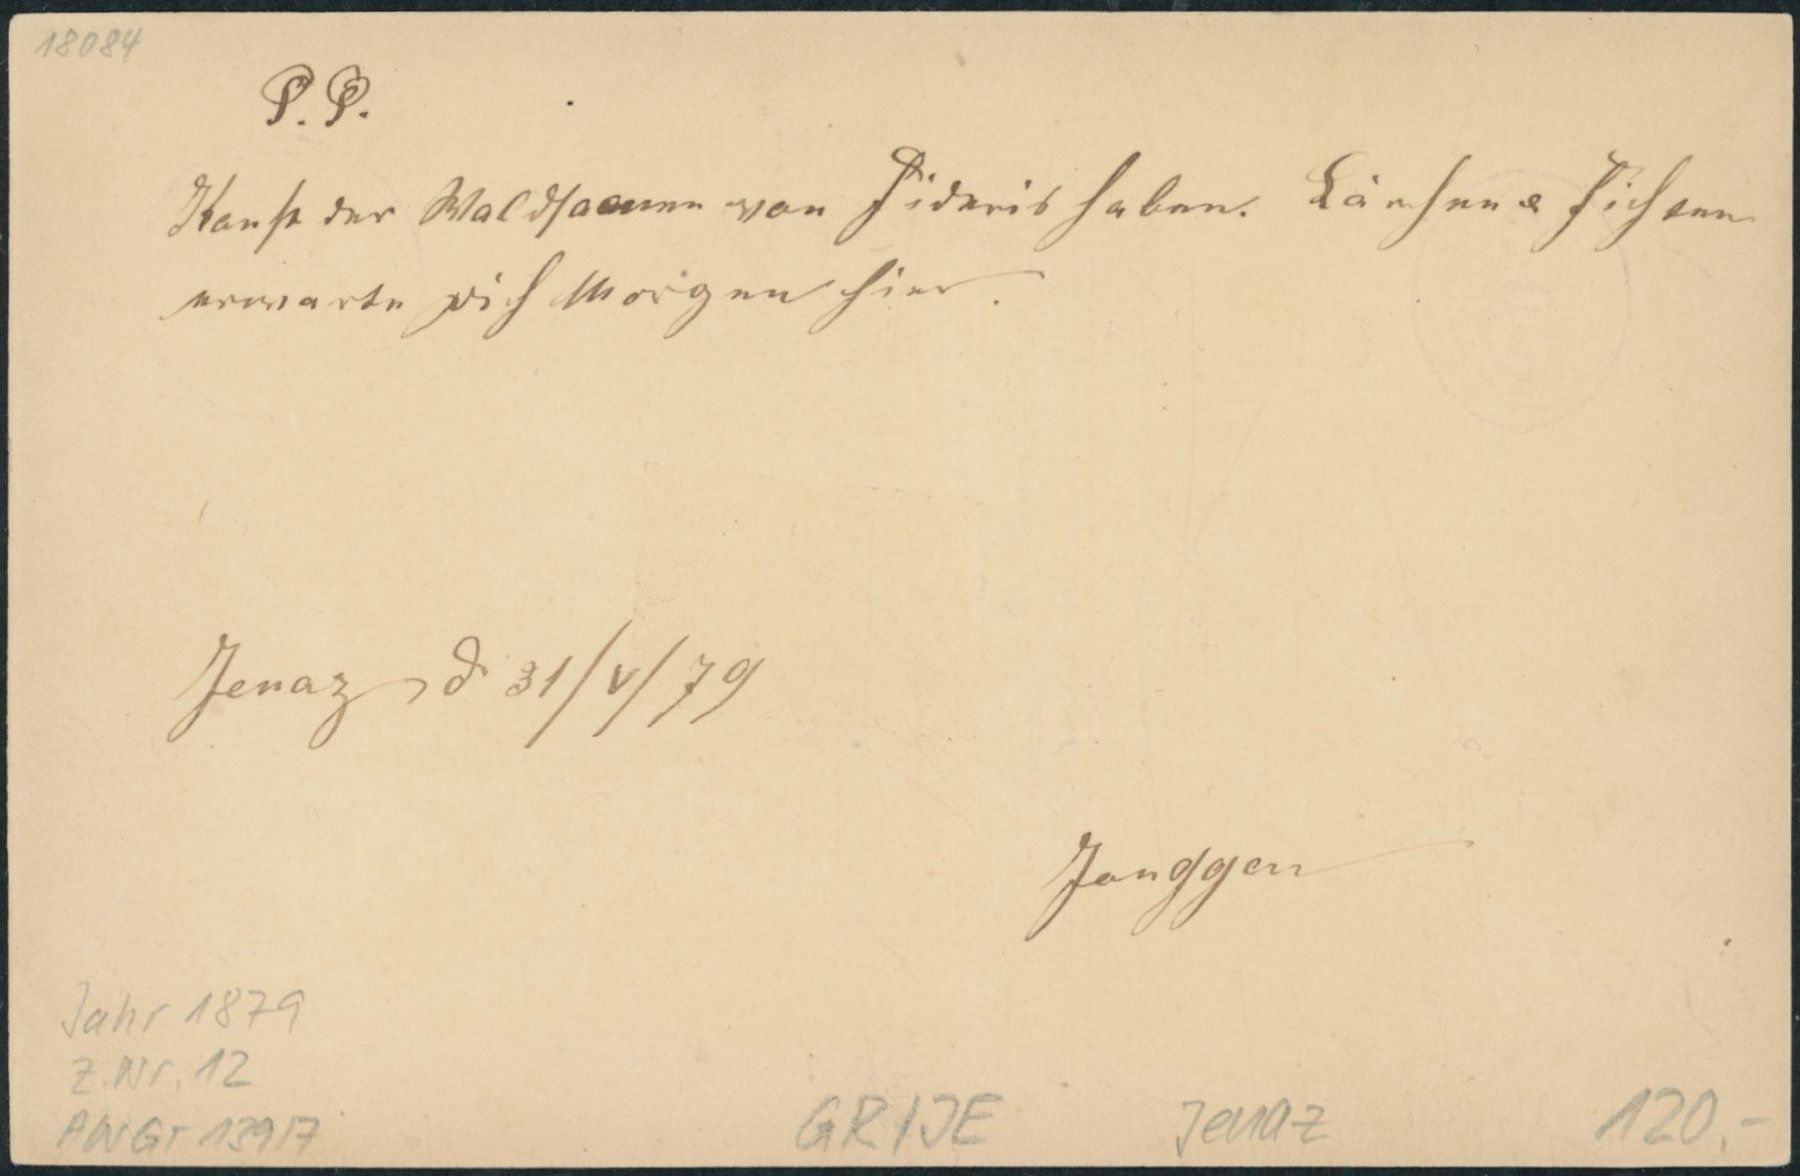 18084
P. P.
Kanst der Waldsaamen von Fideris haben. Lärchen & Fichten
erwarte dich Morgen hier.
Jenaz, d 31/V/79
Janggen
Jahr 1879
Z. Nr. 12
AWGr 139/7
GR/JE Jenaz 120,-